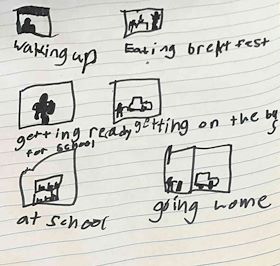 waking up
Eating brektfest
getting ready
for school
getting on the bus
at school
going home